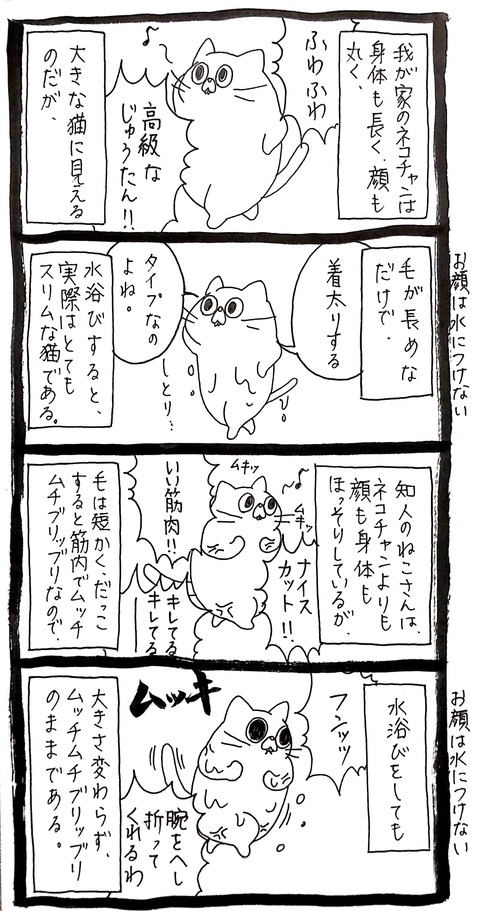 我が家のネコチャンは
身体も長く、顔も
丸く、
ふわふわ
♪
高級な
じゅうたん!!
大きな猫に見える
のだが、
お顔は水につけない
毛が長めな
だけで、
着太りする
タイプなの
よね。
しとり…
水浴びすると、
実際はとても
スリムな猫である。
知人のねこさんは、
ネコチャンよりも
顔も身体も
ほっそりしているが、
♪
ムキッ
ムキッ
ナイス
カット!!
いい筋肉!!
キレてる
キレてる
毛は短かく、だっこ
すると筋肉でムッチ
ムチブリップリなので、
お顔は水につけない
水浴びをしても
フンッッ
ムッキ
腕をへし
折って
くれるわ
大きさ変わらず、
ムッチムチブリップリ
のままである。